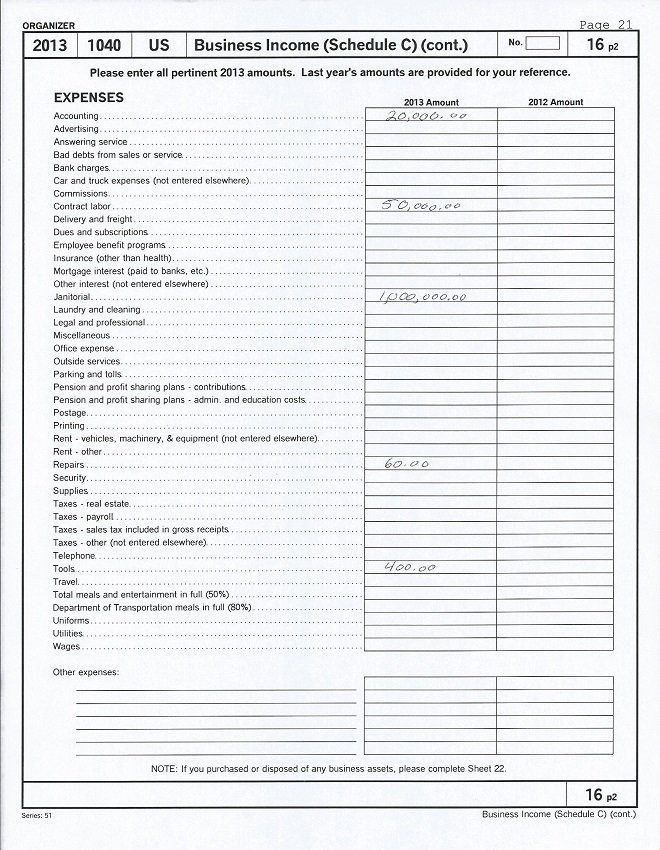 ORGANIZER
Page 21
2013 1040 US Business Income (Schedule C) (cont.) No. 16 p2
Please enter all pertinent 2013 amounts. Last year's amounts are provided for your reference.
EXPENSES
2013 Amount 2012 Amount
Accounting 20,000.00
Advertising
Answering service
Bad debts from sales or service
Bank charges
Car and truck expenses (not entered elsewhere)
Commissions
Contract labor 50,000.00
Delivery and freight
Dues and subscriptions
Employee benefit programs
Insurance (other than health)
Mortgage interest (paid to banks, etc.)
Other interest (not entered elsewhere)
Janitorial 1,000,000.00
Laundry and cleaning
Legal and professional
Miscellaneous
Office expense
Outside services
Parking and tolls
Pension and profit sharing plans - contributions
Pension and profit sharing plans - admin. and education costs
Postage
Printing
Rent - vehicles, machinery, & equipment (not entered elsewhere)
Rent - other
Repairs 60.00
Security
Supplies
Taxes - real estate
Taxes - payroll
Taxes - sales tax included in gross receipts
Taxes - other (not entered elsewhere)
Telephone
Tools 400.00
Travel
Total meals and entertainment in full (50%)
Department of Transportation meals in full (80%)
Uniforms
Utilities
Wages
Other expenses:
NOTE: If you purchased or disposed of any business assets, please complete Sheet 22.
16 p2
Series: 51
Business Income (Schedule C) (cont.)